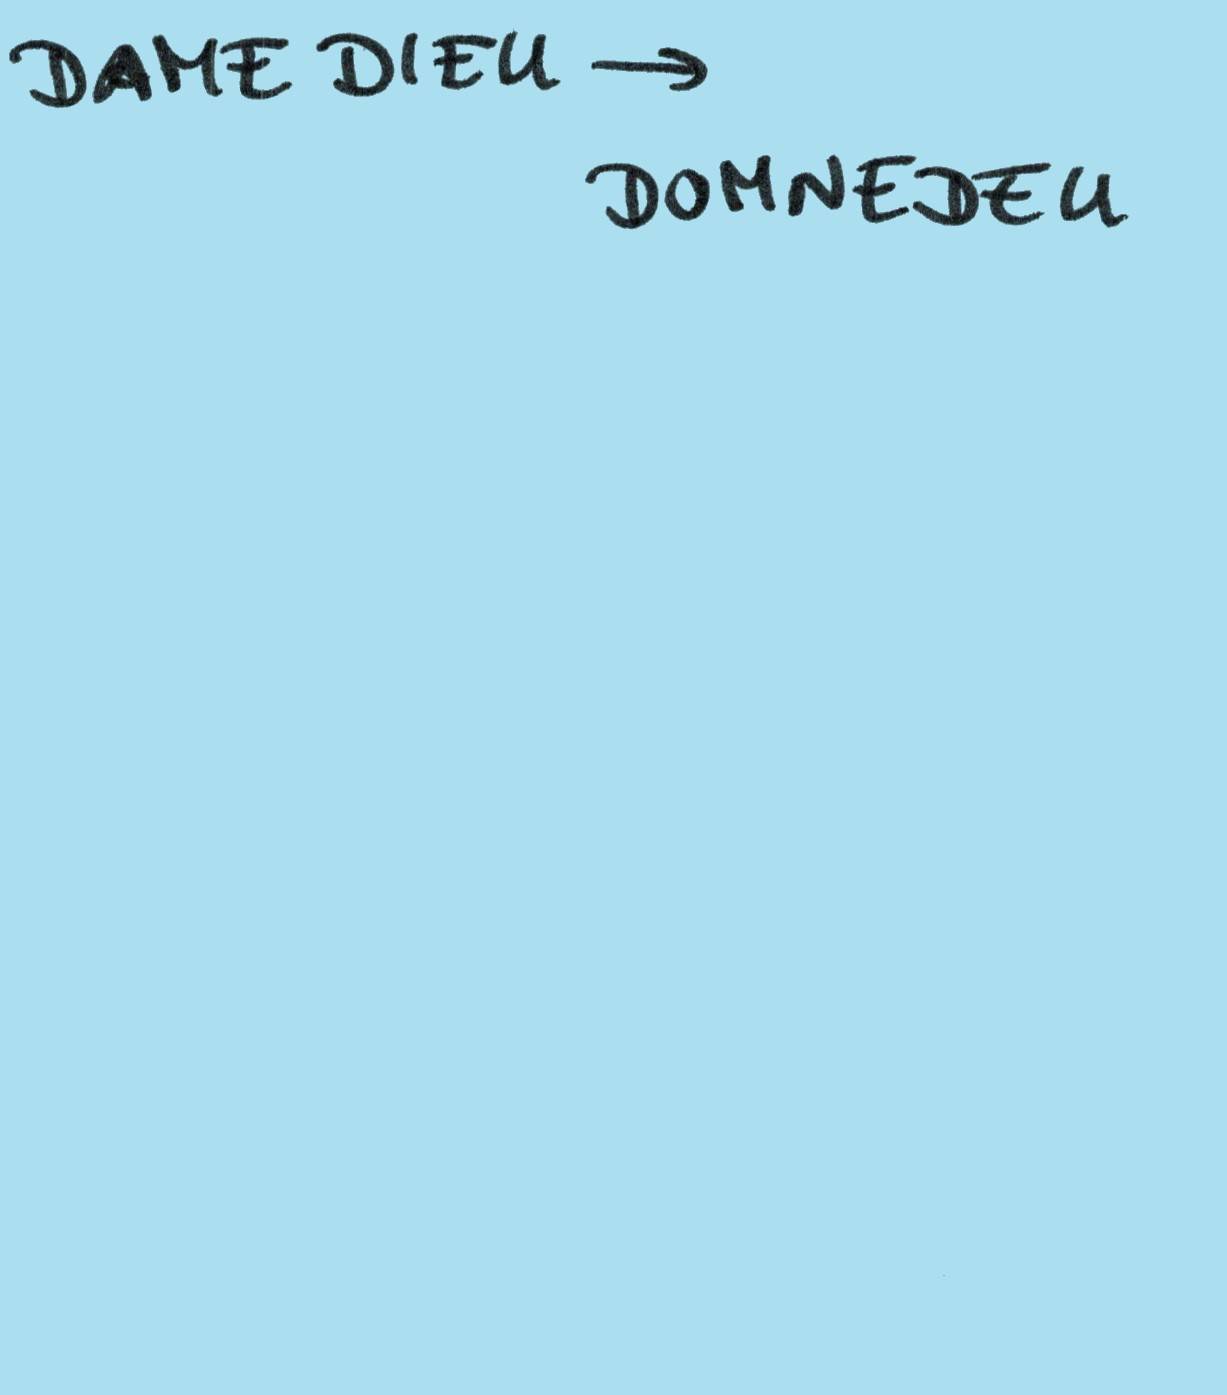 DAME DIEU →
DOMNEDEU